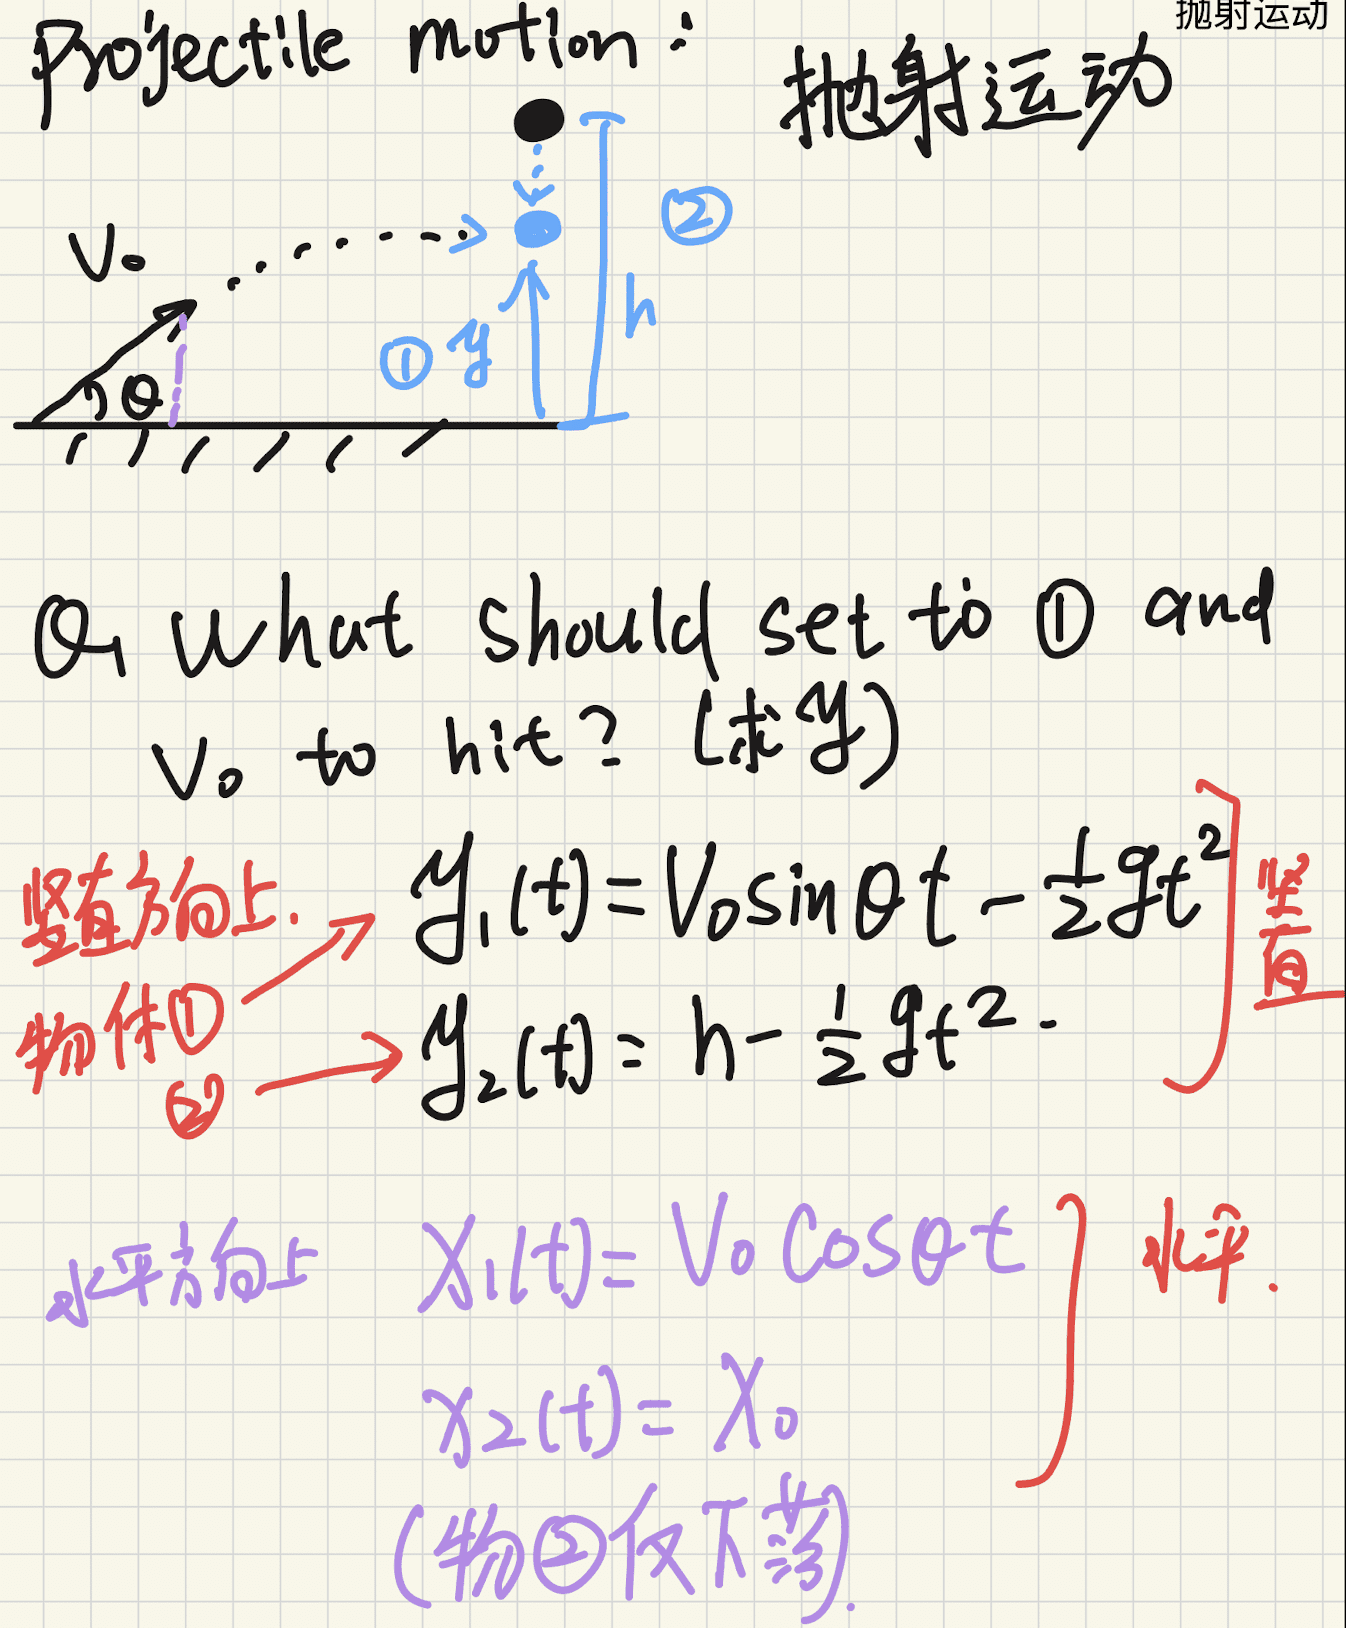 抛射运动
projectile motion:
抛射运动
②
V₀
h
① y
θ
Q, What should set to ① and
V₀ to hit? (求y)
竖直方向上. y₁(t)=V₀sinθt-½gt² 竖直
物体① y₂(t)=h-½gt².
②
水平方向上 X₁(t)=V₀Cosθt 水平.
x₂(t)=X₀
(物②仅下落).